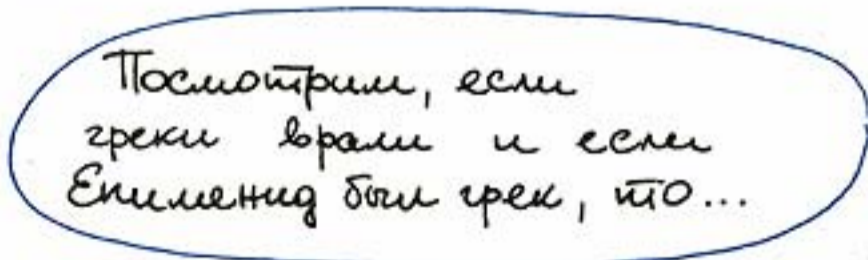 Посмотрим, если
греки врали и если
Епименид был грек, то...